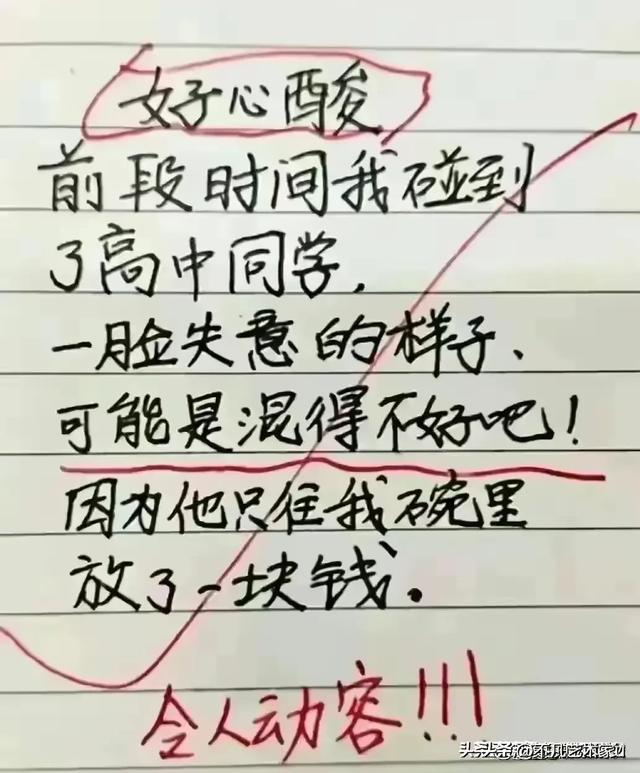 好心酸
前段时间我碰到
了高中同学，
一脸失意的样子、
可能是混得不好吧！
因为他只往我碗里
放了一块钱。
令人动容!!!